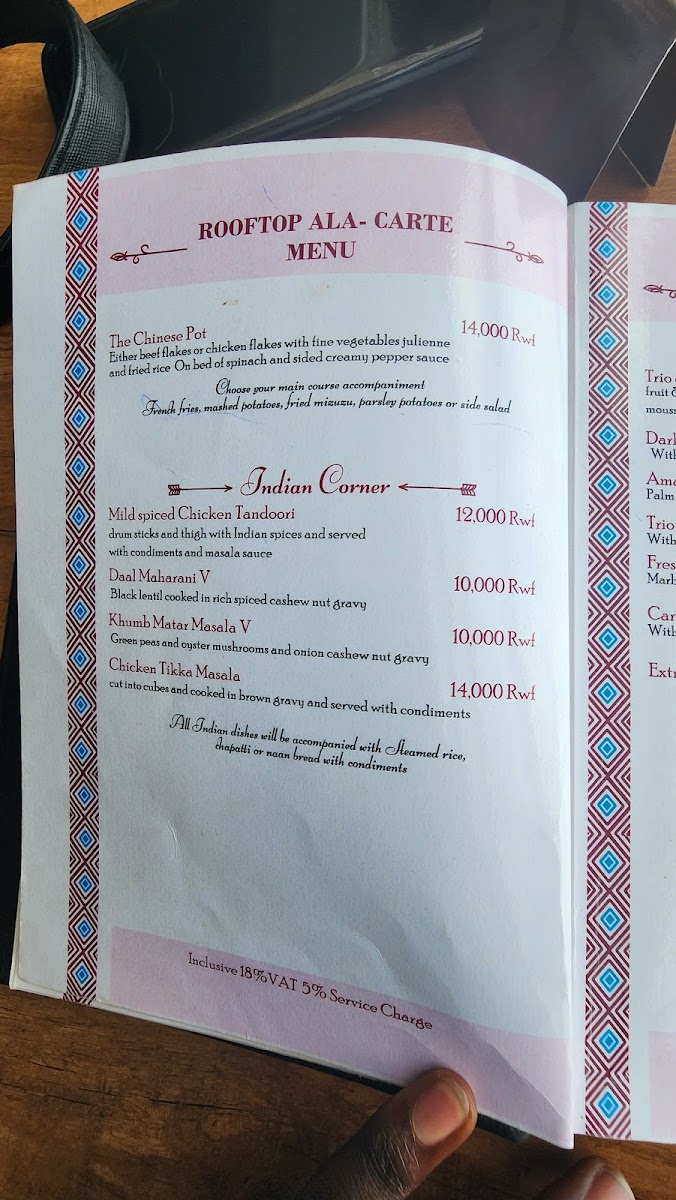 ROOFTOP ALA- CARTE
MENU
The Chinese Pot 14,000 Rwf
Either beef flakes or chicken flakes with fine vegetables julienne
and fried rice On bed of spinach and sided creamy pepper sauce
Choose your main course accompaniment
French fries, mashed potatoes, fried mizuzu, parsley potatoes or side salad
Indian Corner
Mild spiced Chicken Tandoori 12,000 Rwf
drum sticks and thigh with Indian spices and served
with condiments and masala sauce
Daal Maharani V 10,000 Rwf
Black lentil cooked in rich spiced cashew nut gravy
Khumb Matar Masala V 10,000 Rwf
Green peas and oyster mushrooms and onion cashew nut gravy
Chicken Tikka Masala 14,000 Rwf
cut into cubes and cooked in brown gravy and served with condiments
All Indian dishes will be accompanied with Steamed rice,
chapatti or naan bread with condiments
Inclusive 18%VAT 5% Service Charge
Trio
fruit
Palm
Trio
With